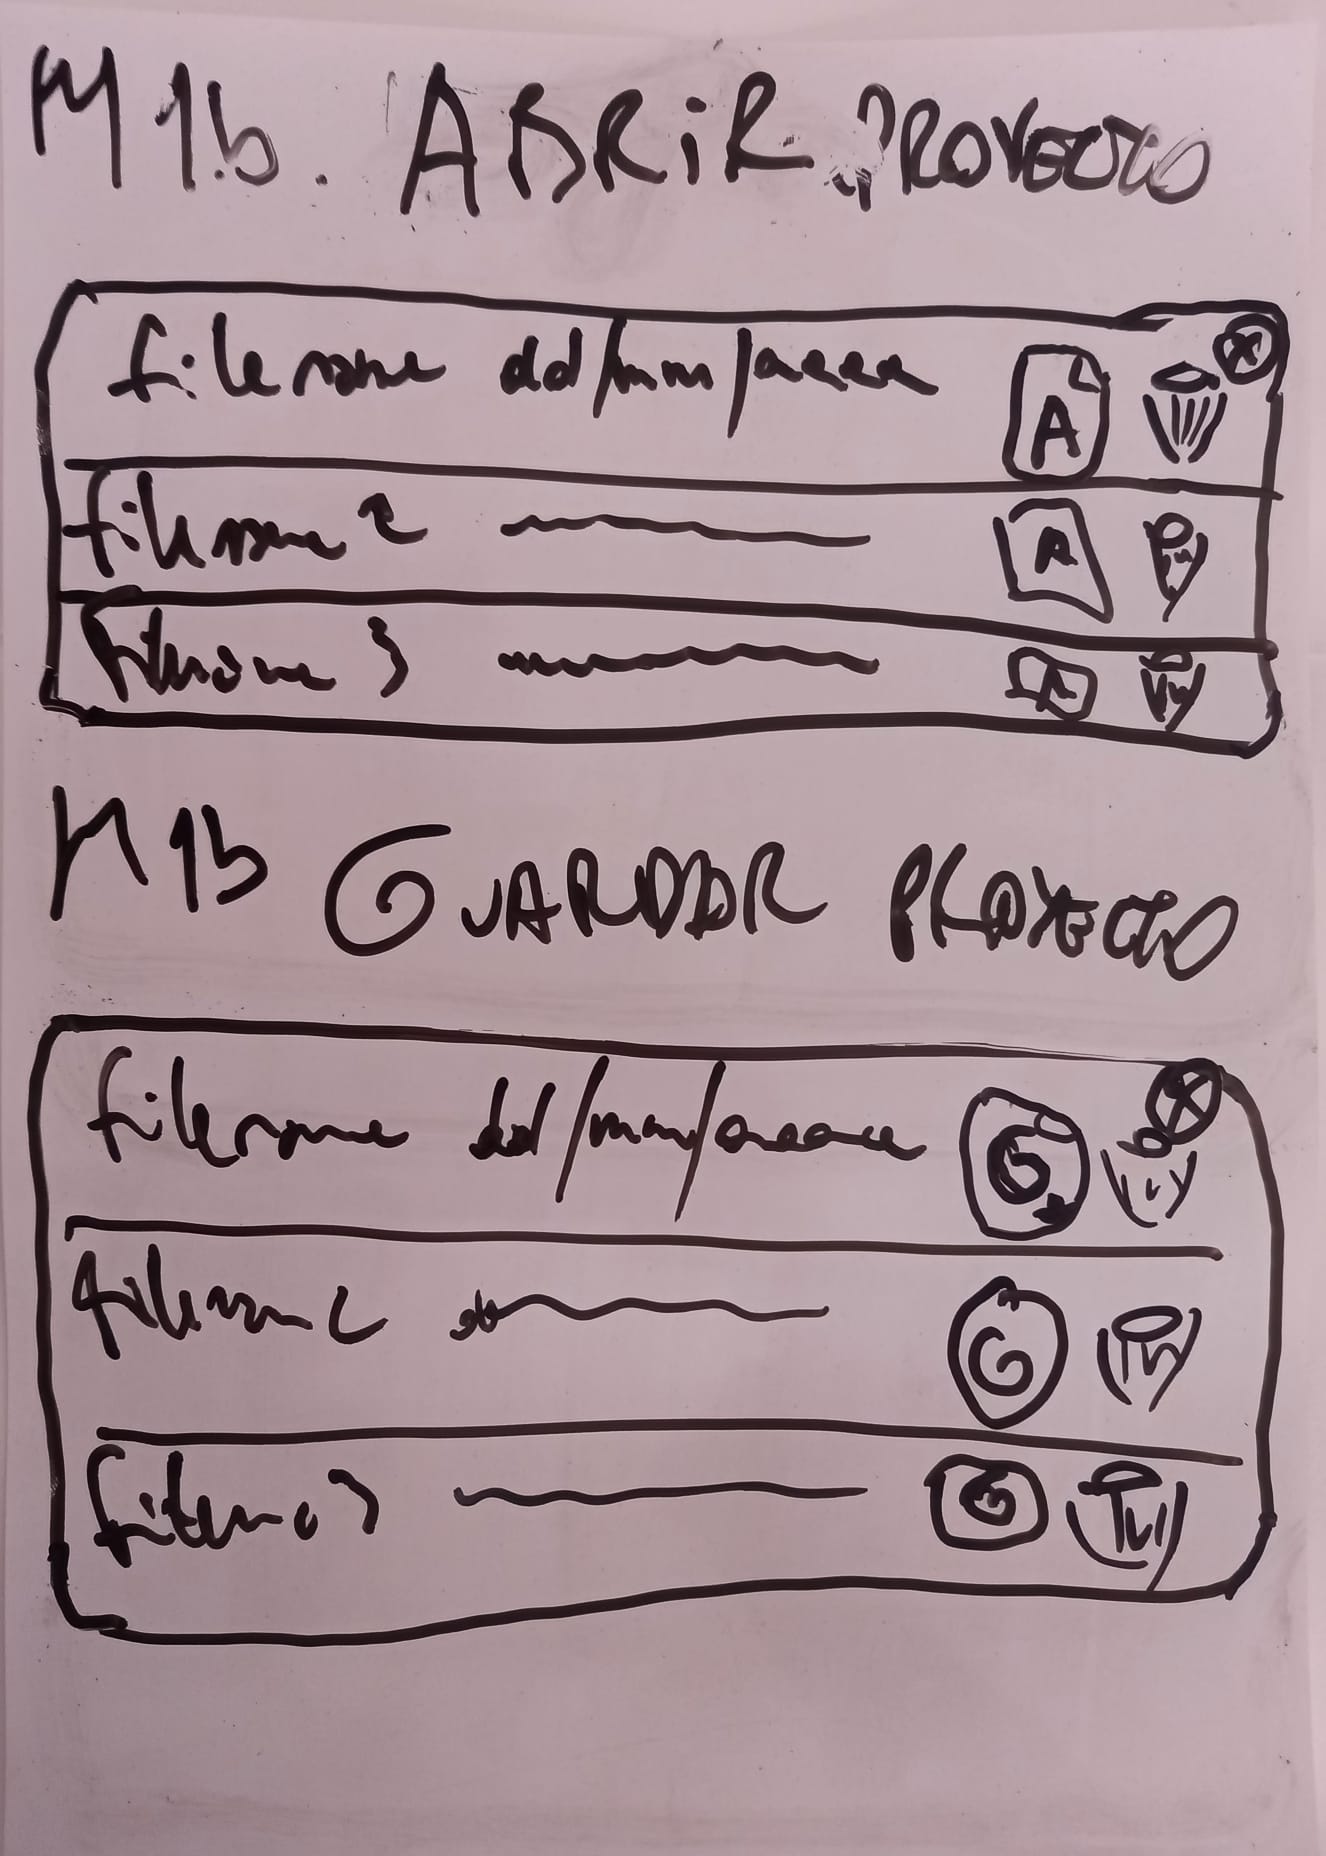 M 1.b. ABRiR PROYECTO
filename dd/mm/aaaa A X
filename 2 A
Filename 3 A
M 1b GUARDAR PROYECTO
filename dd/mm/aaaa G X
filenam 2 G
filena 3 G